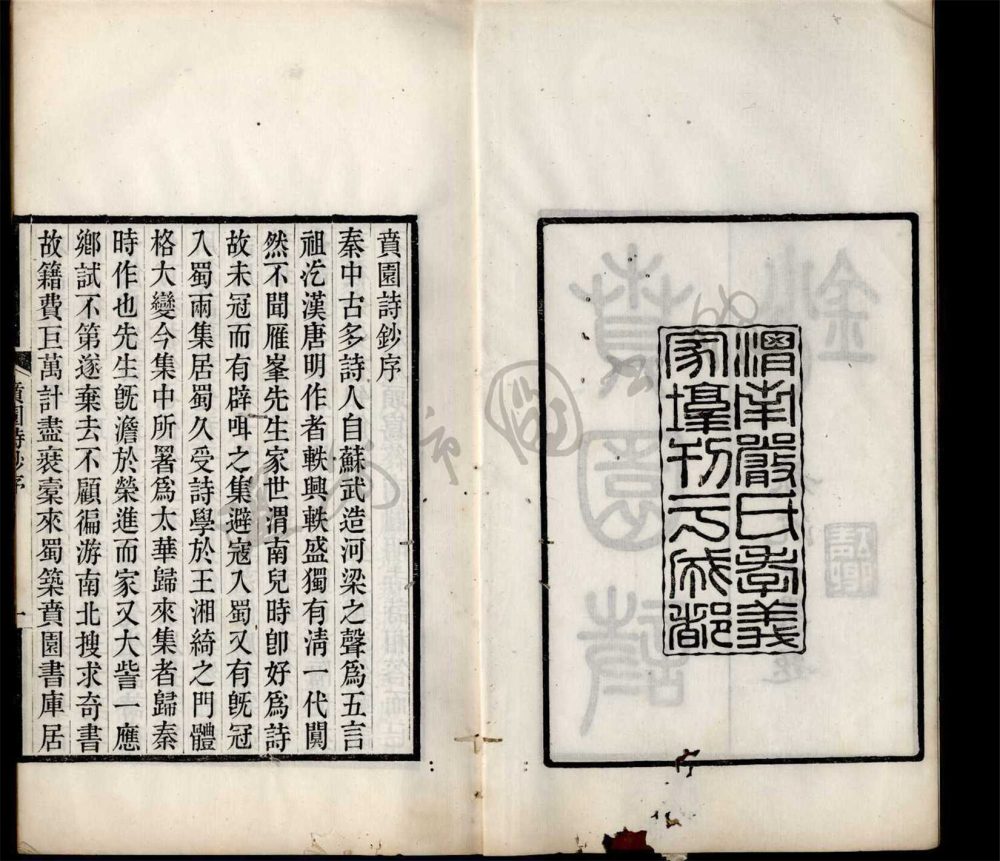 渭南嚴氏孝義
家塾刊于成都
賁園詩鈔序
秦中古多詩人自蘇武造河梁之聲爲五言
祖汔漢唐明作者軼興軼盛獨有淸一代闃
然不聞雁峯先生家世渭南兒時卽好爲詩
故未冠而有辟咡之集避寇入蜀又有旣冠
入蜀兩集居蜀久受詩學於王湘綺之門體
格大變今集中所署爲太華歸來集者歸秦
時作也先生旣澹於榮進而家又大訾一應
鄕試不第遂棄去不顧徧游南北搜求奇書
故籍費巨萬計盡裒橐來蜀築賁園書庫居
賁園詩鈔序
一